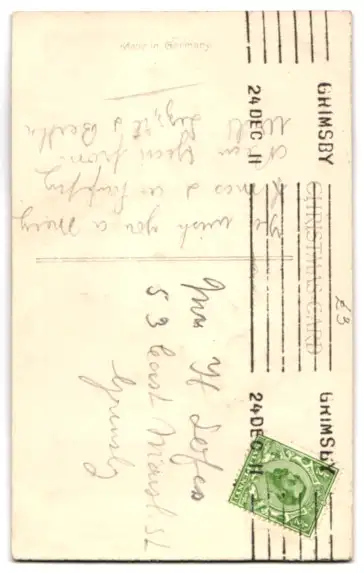 Made in Germany
GRIMSBY
24 DEC 11
GRIMSBY
24 DEC 11
CHRISTMAS CARD
£3
To wish you a Merry
Xmas & a happy
New Year from
Will
& Bertha
Mrs H
53 East Marsh St
Grimsby